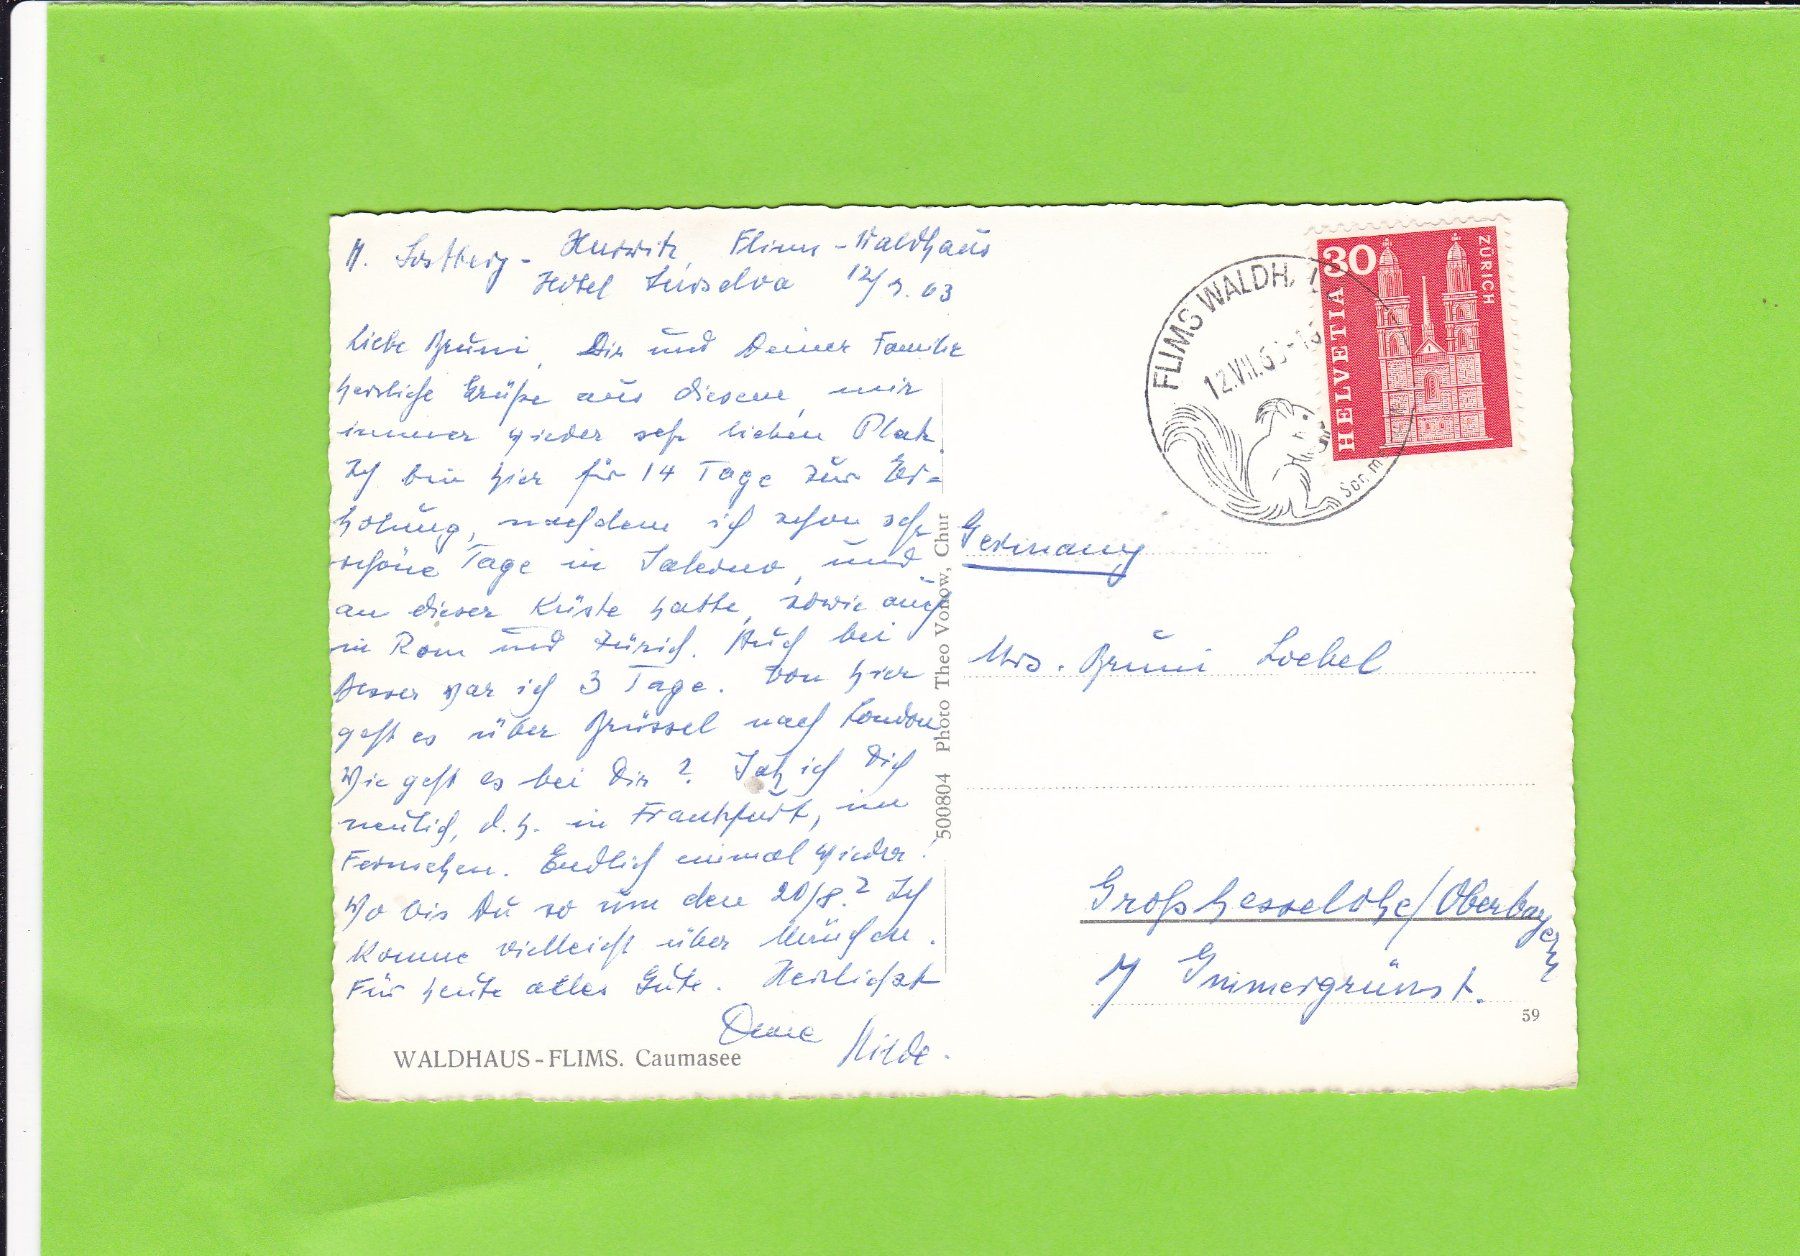 H. Hurwitz, Flims-Waldhaus
Hotel Surselva 12/7.63
Liebe Bruni, Dir und Deiner Familie
herzliche Grüße aus diesem, mir
immer wieder sehr lieben Platz.
Ich bin hier für 14 Tage zur Er-
holung, nachdem ich schon sehr
schöne Tage in Salerno, und
an dieser Küste hatte, sowie auch
in Rom und Zürich. Auch bei
war ich 3 Tage. Von hier
geht es über Brüssel nach London
Wie geht es bei Dir? Sah ich Dich
neulich, d.h. in Frankfurt, im
Fernsehen. Endlich einmal wieder!
Wo bis Du so um den 20/8.? Ich
komme vielleicht über München.
Für heute alles Gute. Herzlichst
Deine Hilde.
WALDHAUS-FLIMS. Caumasee
500804 Photo Theo Vonow, Chur
FLIMS WALDH
12.VII.63
Som
30
HELVETIA
ZÜRICH
Germany
Mrs. Bruni Loebel
Großhesselohe/Oberbayern
7 Immergrünst.
59